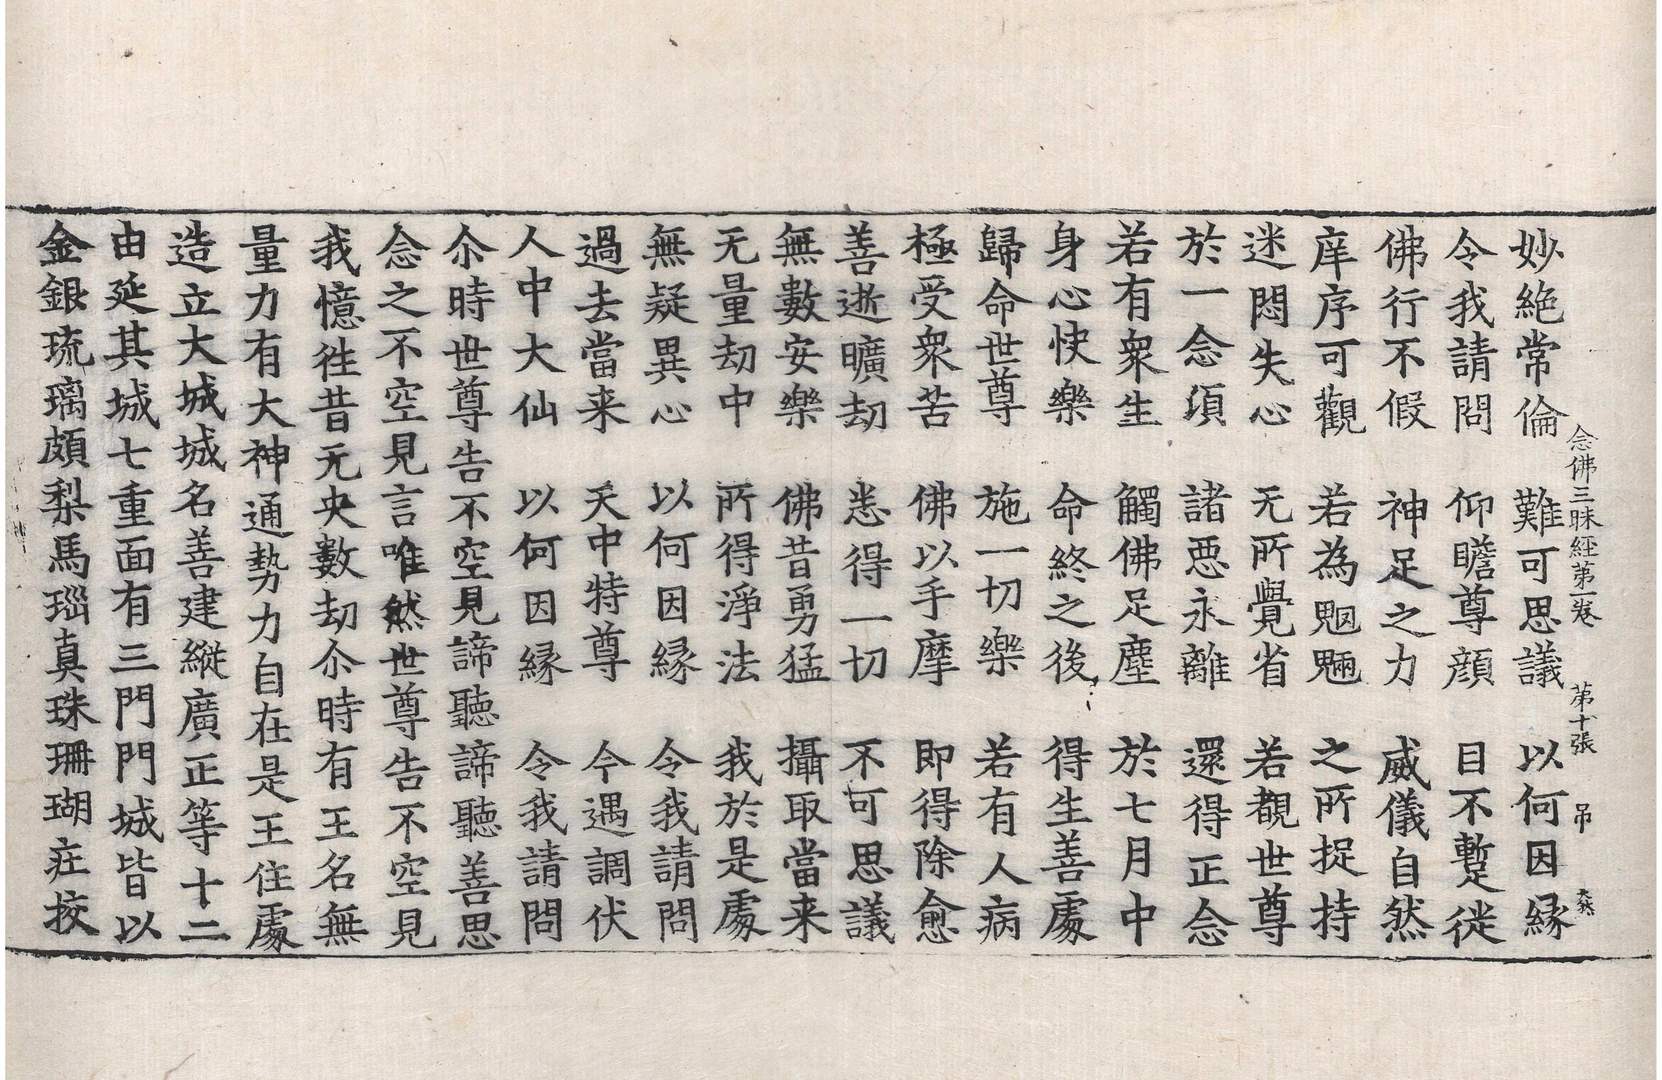 念佛三昧經第一卷　第十張　弔
妙絶常倫　難可思議　以何因縁
令我請問　仰瞻尊顔　目不暫從
佛行不假　神足之力　威儀自然
庠序可觀　若為魍魎　之所捉持
迷悶失心　无所覺省　若覩世尊
於一念頃　諸惡永離　還得正念
若有衆生　觸佛足塵　於七月中
身心快樂　命終之後　得生善處
歸命世尊　施一切樂　若有人病
極受衆苦　佛以手摩　即得除愈
善逝曠劫　悉得一切　不可思議
無數安樂　佛昔勇猛　攝取當来
无量劫中　所得淨法　我於是處
無疑異心　以何因縁　令我請問
過去當来　天中特尊　今遇調伏
人中大仙　以何因縁　令我請問
尒時世尊告不空見諦聽諦聽善思
念之不空見言唯然世尊告不空見
我憶徃昔无央數劫尒時有王名無
量力有大神通勢力自在是王住處
造立大城城名善建縱廣正等十二
由延其城七重面有三門門城皆以
金銀琉璃頗梨馬瑙真珠珊瑚庄挍